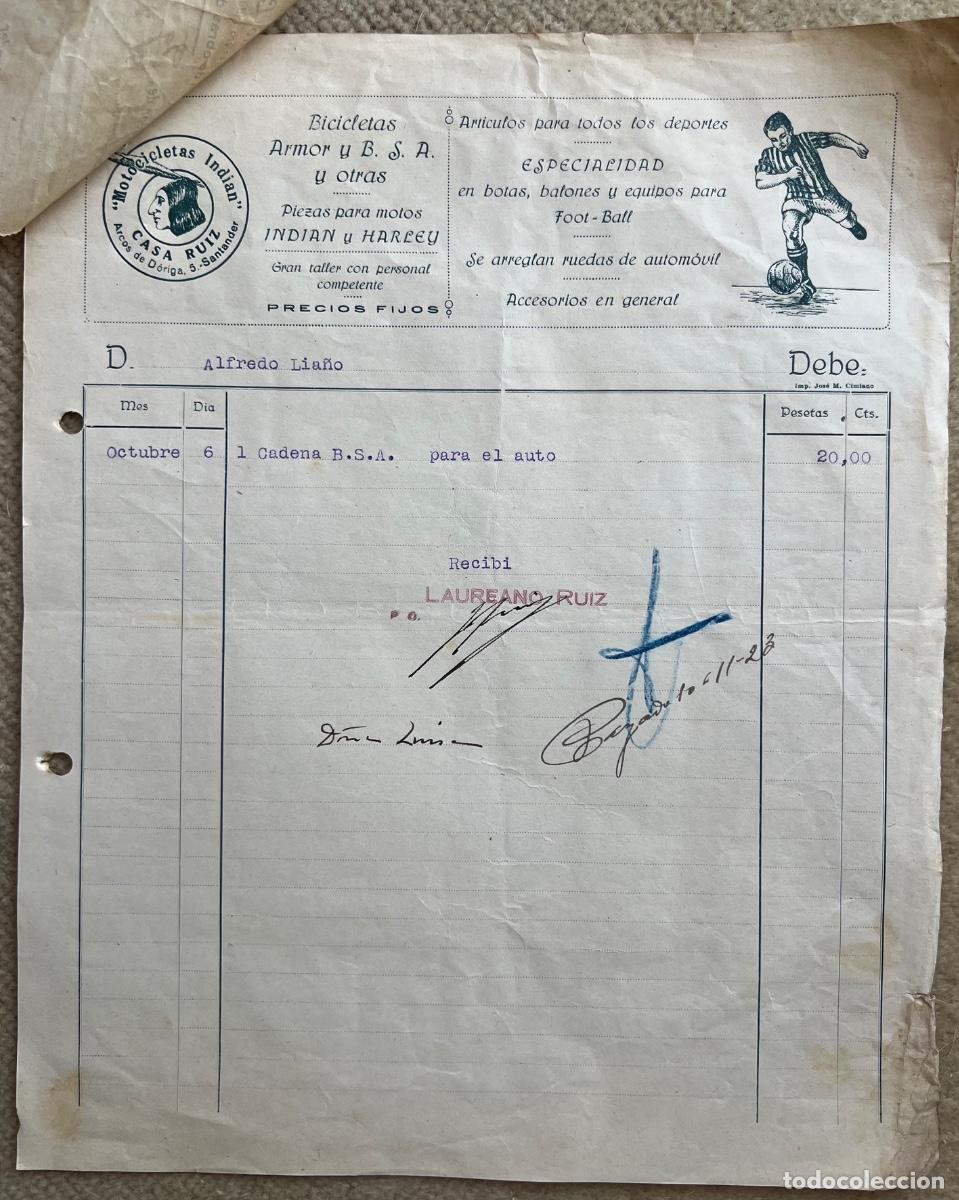 "Motocicletas Indian"
CASA RUIZ
Arcos de Dóriga, 5.-Santander
Bicicletas
Armor y B. S. A.
y otras
Piezas para motos
INDIAN y HARLEY
Gran taller con personal
competente
PRECIOS FIJOS
Articulos para todos los deportes
ESPECIALIDAD
en botas, balones y equipos para
Foot-Ball
Se arreglan ruedas de automóvil
Accesorios en general
D. Alfredo Liaño Debe:
Imp. José M. Cimiano
Mes Dia Pesetas. Cts.
Octubre 6 1 Cadena B.S.A. para el auto 20,00
Recibi
LAUREANO RUIZ
P O.
Dña Luisa
Pagado 11-23
todocoleccion